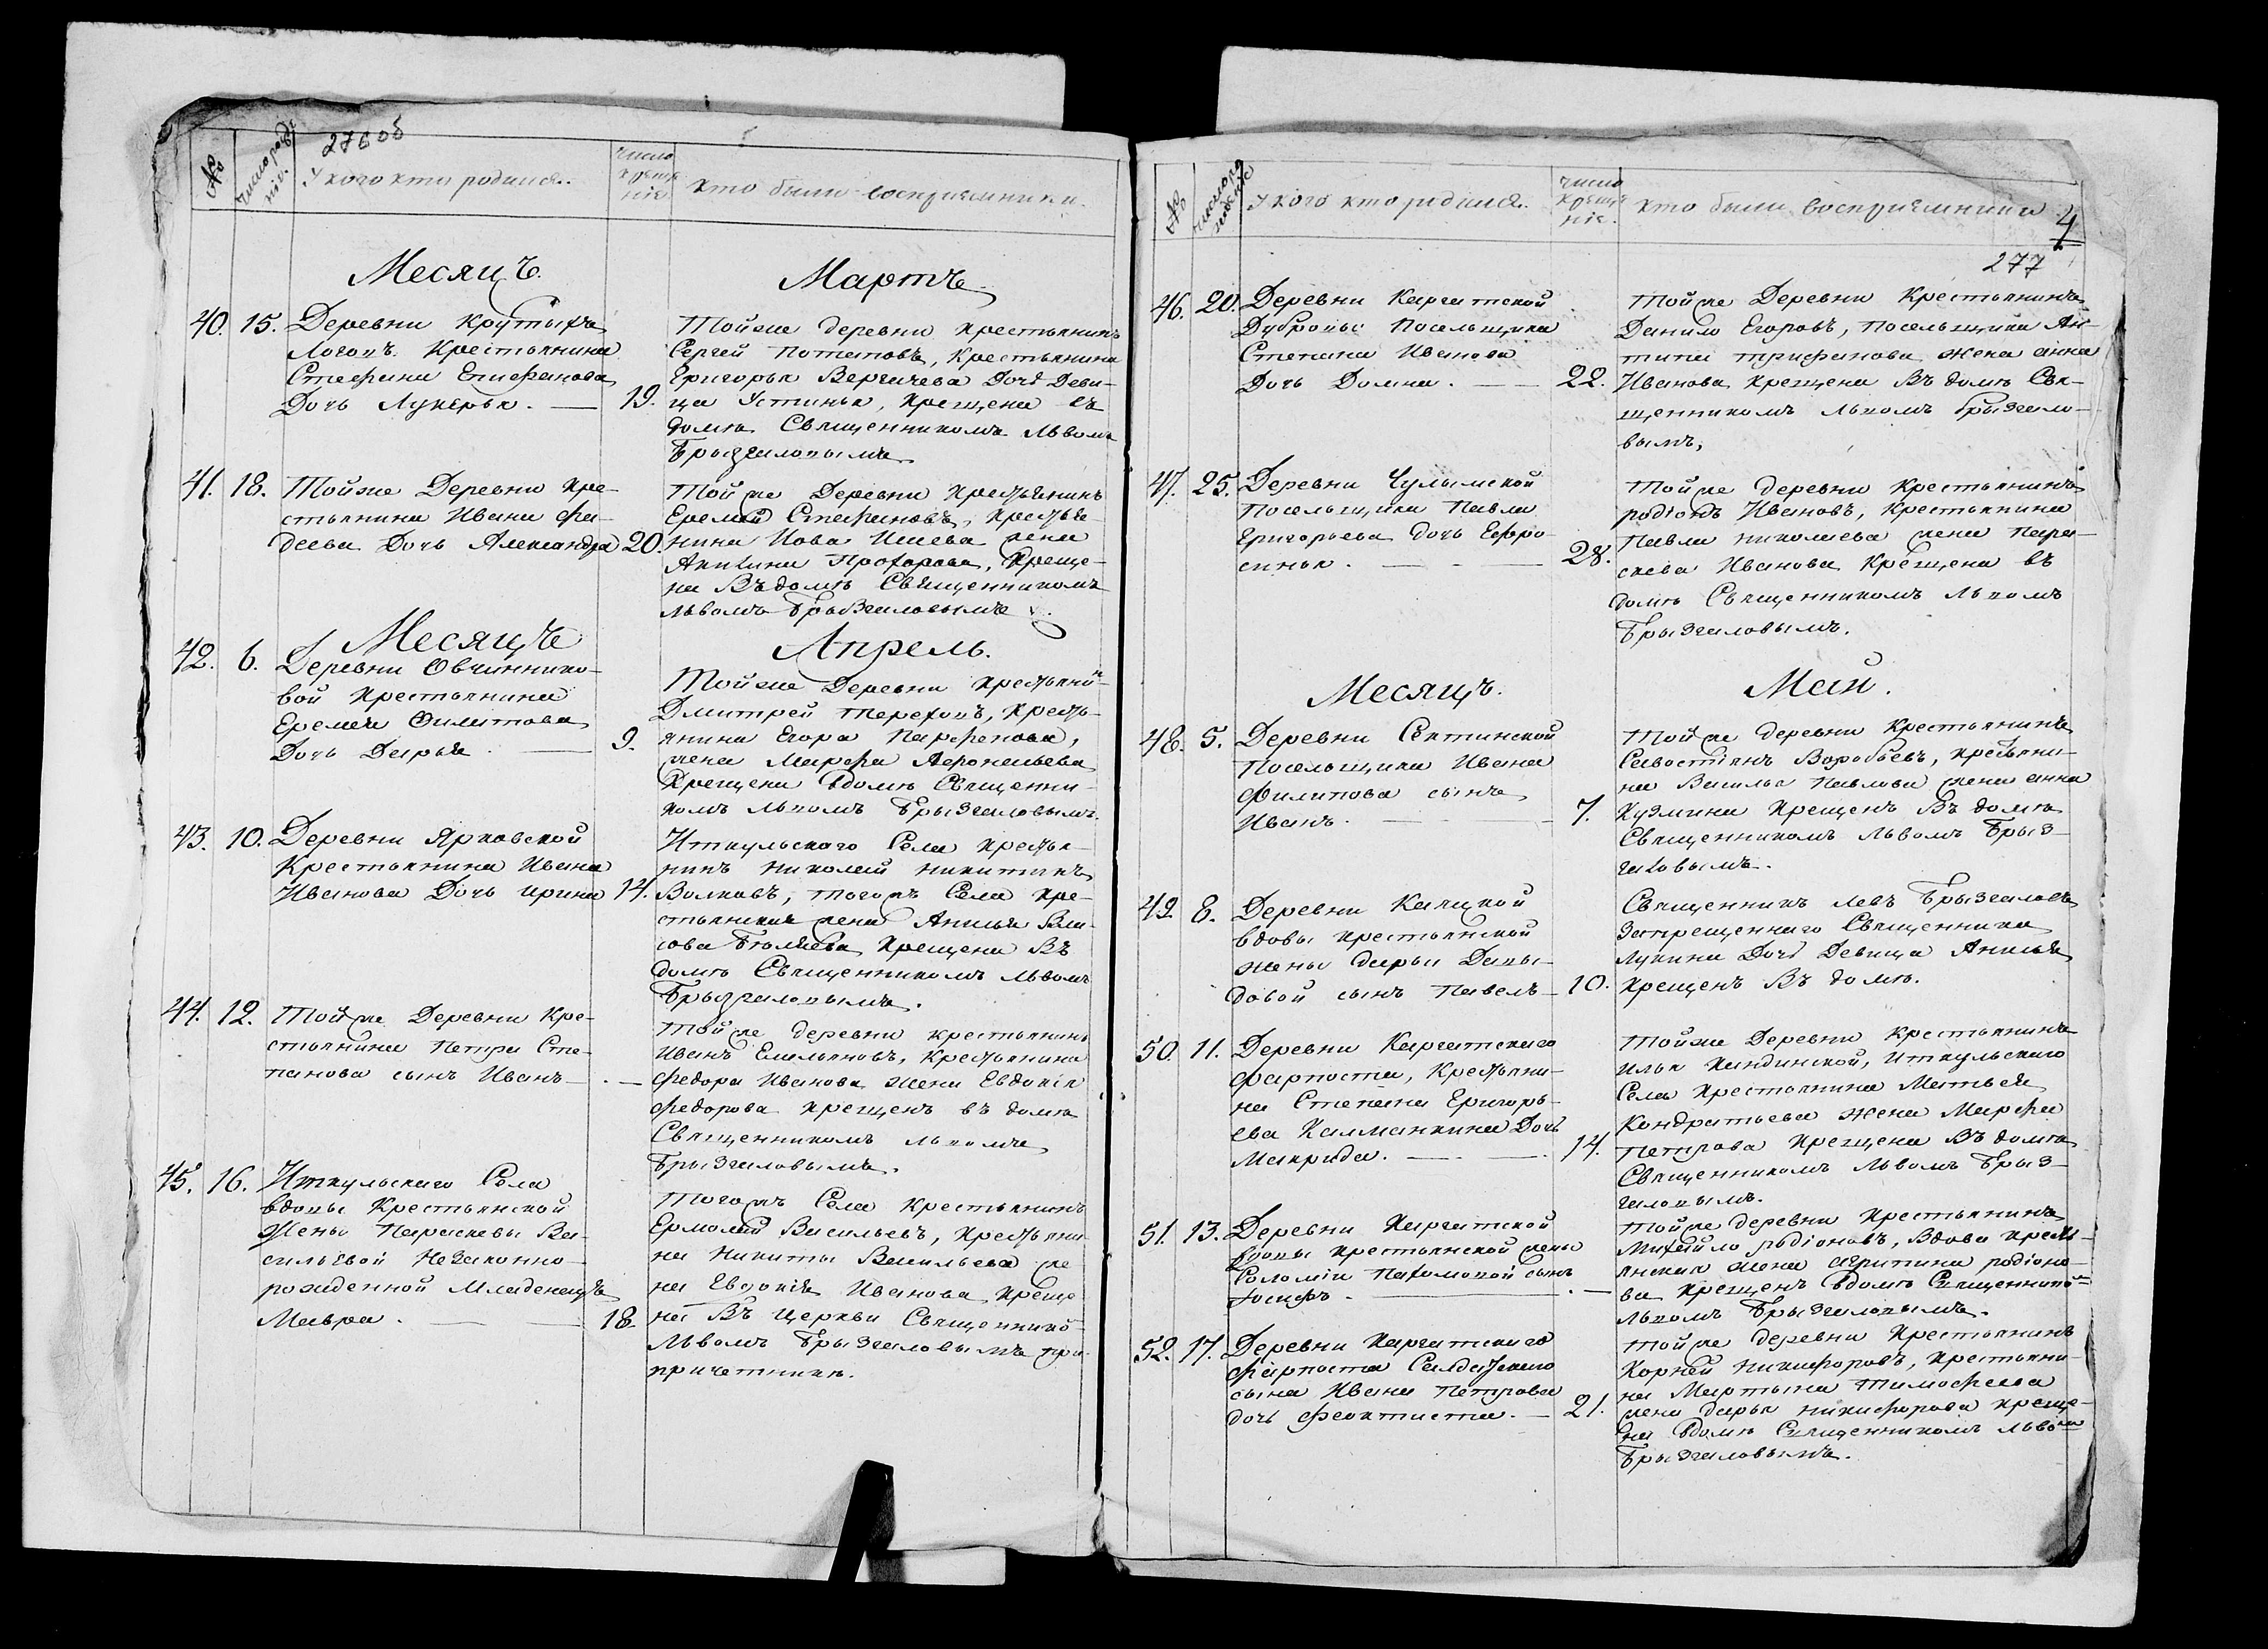 276об
№
число рождения.
У кого кто родился.
число крещения
кто были восприемники.
Месяцъ.
Мартъ
40. 15. Деревни Крутыхъ
Логовъ Крестьянина
Стефана Епифанова
Дочь Лукерья. — 19.
Тойже деревни крестьянинъ
Сергей Потаповъ, Крестьянина
Григорья Вергичева Дочь Деви-
ца Устинья, крещена въ
домѣ Священникомъ Львомъ
Брызгаловымъ
41. 18. Тойже Деревни кре-
стьянина Ивана Фа-
деева Дочь Александра 20.
Тойже Деревни крестьянинъ
Еремей Стефановъ, крестья-
нина Иова Исаева жена
Акилина Прохорова, Креще-
на Въ домѣ Священникомъ
Львомъ Брызгаловымъ
Месяцъ
Апрель.
42. 6. Деревни Овчиннико-
вой крестьянина
Еремея Филатова
Дочь Дарья. — 9.
Тойже Деревни крестьянинъ
Дмитрей Тереховъ, кресть-
янина Егора Парфенова,
жена Марфа
Крещена вдомѣ Священни-
комъ Львомъ Брызгаловымъ.
43. 10. Деревни Ярковской
Крестьянина Ивана
Иванова Дочь Ирина 14.
Иткульскаго Села крестья-
нинъ Николай Никитинъ
Волковъ, тогожъ Села кре-
стьянина жена Анисья Вла-
сова Крещена Въ
домѣ Священникомъ Львомъ
Брызгаловымъ.
44. 12. Тойже Деревни Кре-
стьянина Петра Сте-
панова сынъ Иванъ — . —
Тойже деревни крестьянинъ
Иванъ Емельяновъ, Крестьянина
Федора Иванова жена Евдокія
Федорова крещенъ въ домѣ
Священникомъ Львомъ
Брызгаловымъ.
45. 16. Иткульскаго Села
вдовы Крестьянской
Жены Параскевы Ва-
сильевой Незаконно-
рожденной Младенецъ
Мавра. — 18.
Тогожъ Села Крестьянинъ
Ермолай Васильевъ, крестьяни-
на Никиты Васильева же-
на Евдокія Иванова, креще-
на Въ церкви Священнико-
Львомъ Брызгаловымъ при
причетники.
№
число рождения
У кого кто родился.
число крещения.
кто были восприемники
4
277
46. 20. Деревни Каргатской
Дубровы Посельщика
Степана Иванова
Дочь Домна. — 22.
Тойже Деревни Крестьянинъ
Данило Егоровъ, посельщика Ан-
типа Трифанова жена Анна
Иванова крещена Въ домѣ Свя-
щенникомъ Львомъ Брызгало-
вымъ,
47. 25. Деревни Чулымской
Посельщика Павла
Григорьева дочь Ефро-
синья. — 28.
Тойже деревни Крестьянинъ
родіонъ Ивановъ, Крестьянина
Павла Николаева жена Пара-
скева Иванова Крещена въ
домѣ Священникомъ Львомъ
Брызгаловымъ.
Месяцъ.
Май.
48. 5. Деревни Сектинской
Посельщика Ивана
Филипова сынъ
Иванъ. — 7.
Тойже деревни Крестьянинъ
Савостіянъ Воробьевъ, крестьяни-
на Василья Павлова жена Анна
Кузмина крещенъ Въ домѣ
Священникомъ Львомъ Брыз-
галовымъ.
49. 8. Деревни Капцкой
вдовы крестьянской
жены Дарьи Давы-
довой сынъ Павелъ — 10.
Священникъ Левъ Брызгаловъ
запрещеннаго Священника
Лукина Дочь Девица Анисья
крещенъ Въ домѣ.
50. 11. Деревни Каргатскаго
Фарпоста, Крестьяни-
на Степана Григорь-
ева Калманкина Дочь
Макрида. — 14.
Тойже Деревни Крестьянинъ
Илья Кандинской, Иткульскаго
Села крестьянина Матвея
Кондратьева жена Марфа
Петрова крещена Въ домѣ
Священникомъ Львомъ Брыз-
галовымъ.
51. 13. Деревни Каргатской
вдовы крестьянской жены
Соломіи Пахомовой сынъ
Іосифъ. — . —
Тойже деревни Крестьянинъ
Михайло родіоновъ, Вдова кресть-
янская жена Агрипина родіоно-
ва крещенъ вдомѣ Священнико-
Львомъ Брызгаловымъ.
52. 17. Деревни Каргатскаго
Фарпоста Салдатскаго
сына Ивана Петрова
дочь Феоктиста. — 21.
Тойже деревни Крестьянинъ
Корней Никифоровъ, Крестьяни-
на Мартына Тимофеева
жена Дарья Никифорова креще-
на вдомѣ Священникомъ Львомъ
Брызгаловымъ.